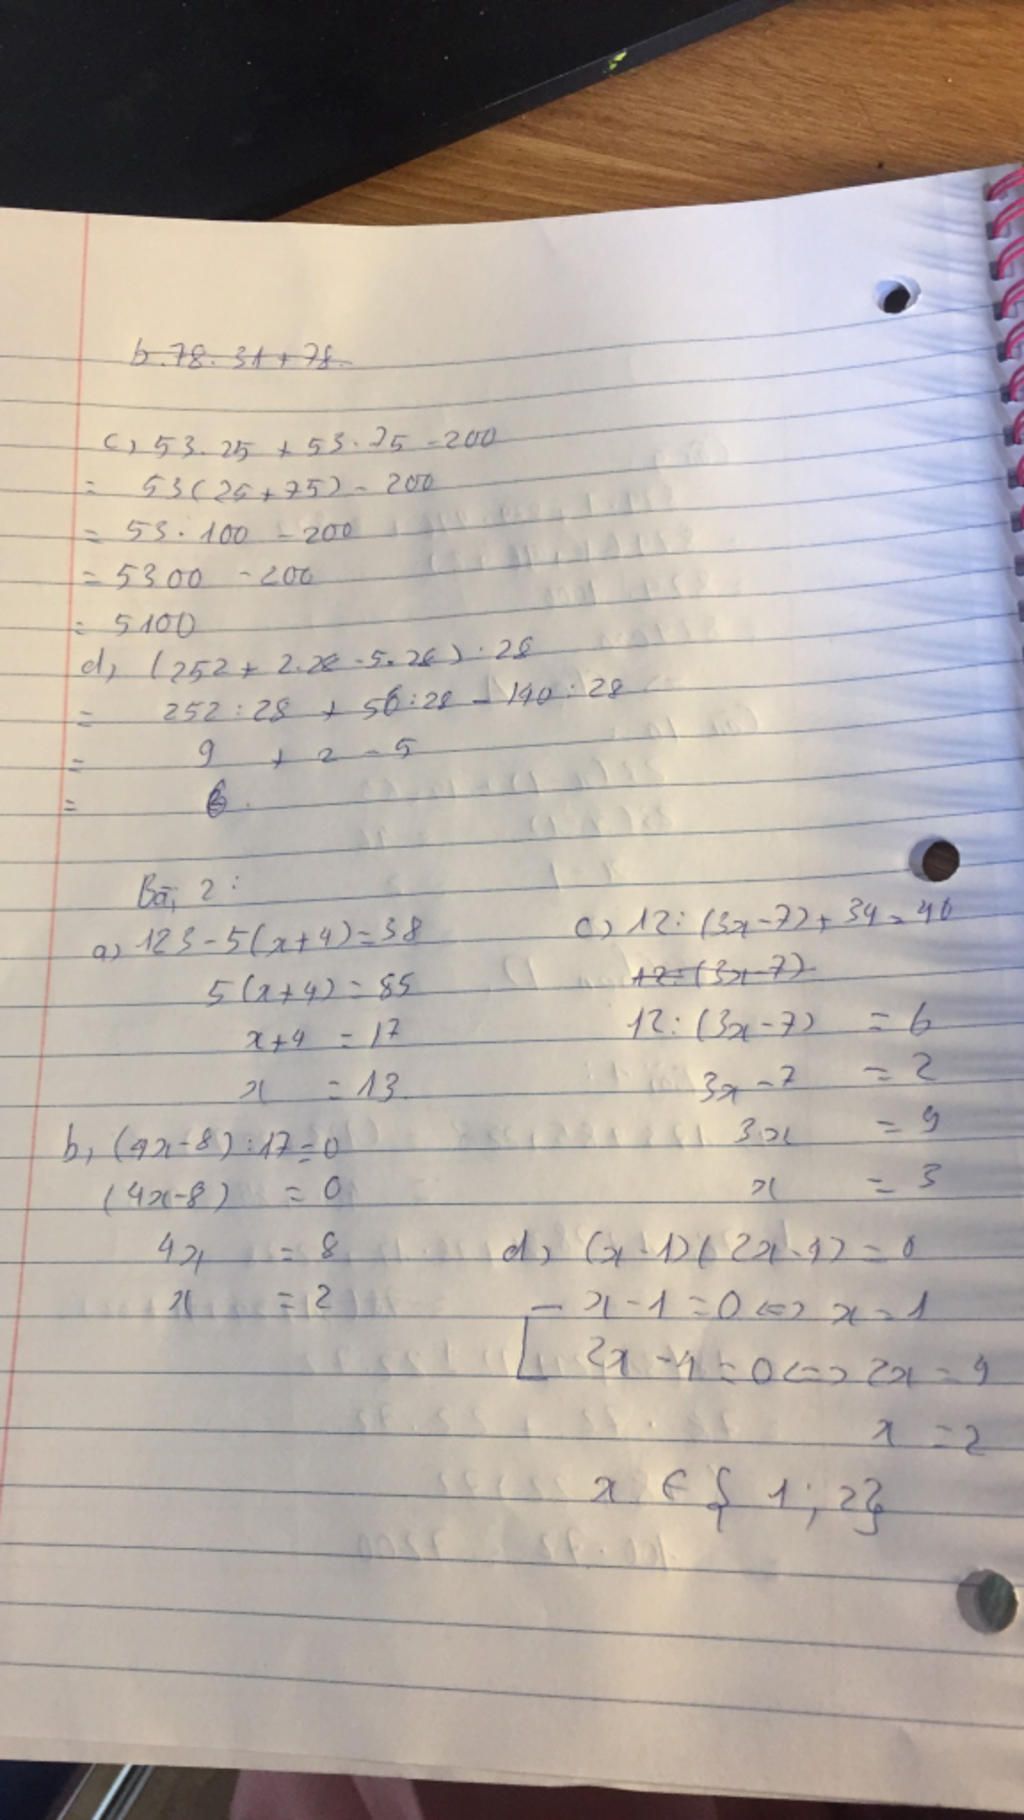 b. 78. 31 + 78.
c) 53. 25 + 53. 75 - 200
= 53 (25 + 75) - 200
= 53. 100 - 200
= 5300 - 200
= 5100
d) (252 + 2. 28 - 5. 28) : 28
= 252 : 28 + 56 : 28 - 140 : 28
= 9 + 2 - 5
= 6.
Bài 2 :
a) 123 - 5(x+4) = 38
5(x+4) = 85
x+4 = 17
x = 13.
b, (4x-8) : 17 = 0
(4x-8) = 0
4x = 8
x = 2
c) 12 : (3x-7) + 34 = 40
12 = (3x-7)
12 : (3x-7) = 6
3x-7 = 2
3x = 9
x = 3
d) (x-1)(2x-4) = 0
x-1 = 0 <=> x = 1
2x-4 = 0 <=> 2x = 4
x = 2
x ∈ { 1 ; 2}